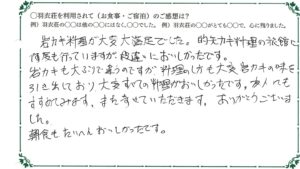 ○羽衣荘を利用されて(お食事・ご宿泊)のご感想は?
例)羽衣荘の○○は他の○○にはなし○○でした。 例)羽衣荘の○○がとても○○で、心に残りました。
岩カキ料理が大変大満足でした。的矢カキ料理の旅館に
何度も行っていますが、段違いにおいしかったです。
岩カキも大ぶりで違うのですが料理のしかも大変岩カキの味を
引き出しており大変すべての料理がおいしかったです。友人にも
すすめてみます。また寄せていただきます。ありがとうございま
した。
朝食もたいへんおいしかったです。